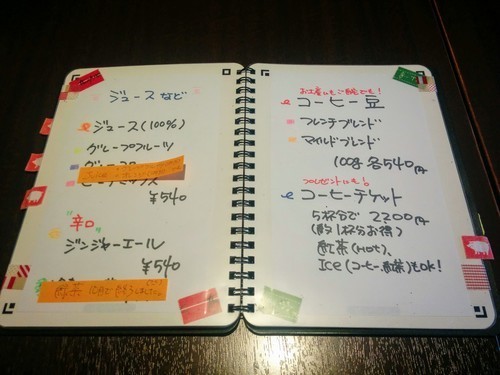 ジュースなど
ジュース(100%)
グループフルーツ
¥540
辛口
ジンジャーエール
¥540
お土産にもご自宅でも!
コーヒー豆
フレンチブレンド
マイルドブレンド
100g 各540円
プレゼントにも!
コーヒーチケット
5杯分で 2200円
(約1杯分お得)
紅茶(HOT)、
Ice(コーヒー、紅茶)もok!